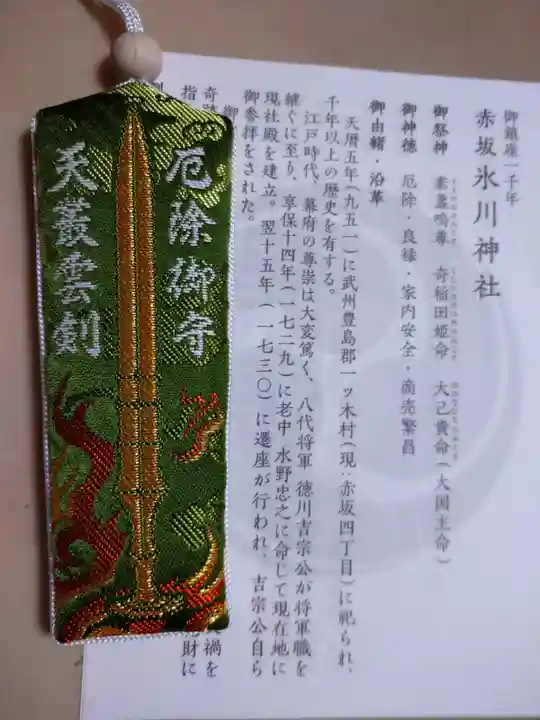 厄除御守
天叢雲剣
御鎮座一千年
赤坂氷川神社
御祭神 素盞嗚尊 奇稲田姫命 大己貴命(大国主命)
御神徳 厄除・良縁・家内安全・商売繁昌
御由緒・沿革
天暦五年(九五一)に武州豊島郡一ッ木村(現:赤坂四丁目)に祀られ、
千年以上の歴史を有する。
江戸時代、幕府の尊崇は大変篤く、八代将軍 徳川吉宗公が将軍職を
継ぐに至り、享保十四年(一七二九)に老中 水野忠之に命じて現在地に
現社殿を建立。翌十五年(一七三〇)に遷座が行われ、吉宗公自ら
御参拝をされた。
禍を
財に